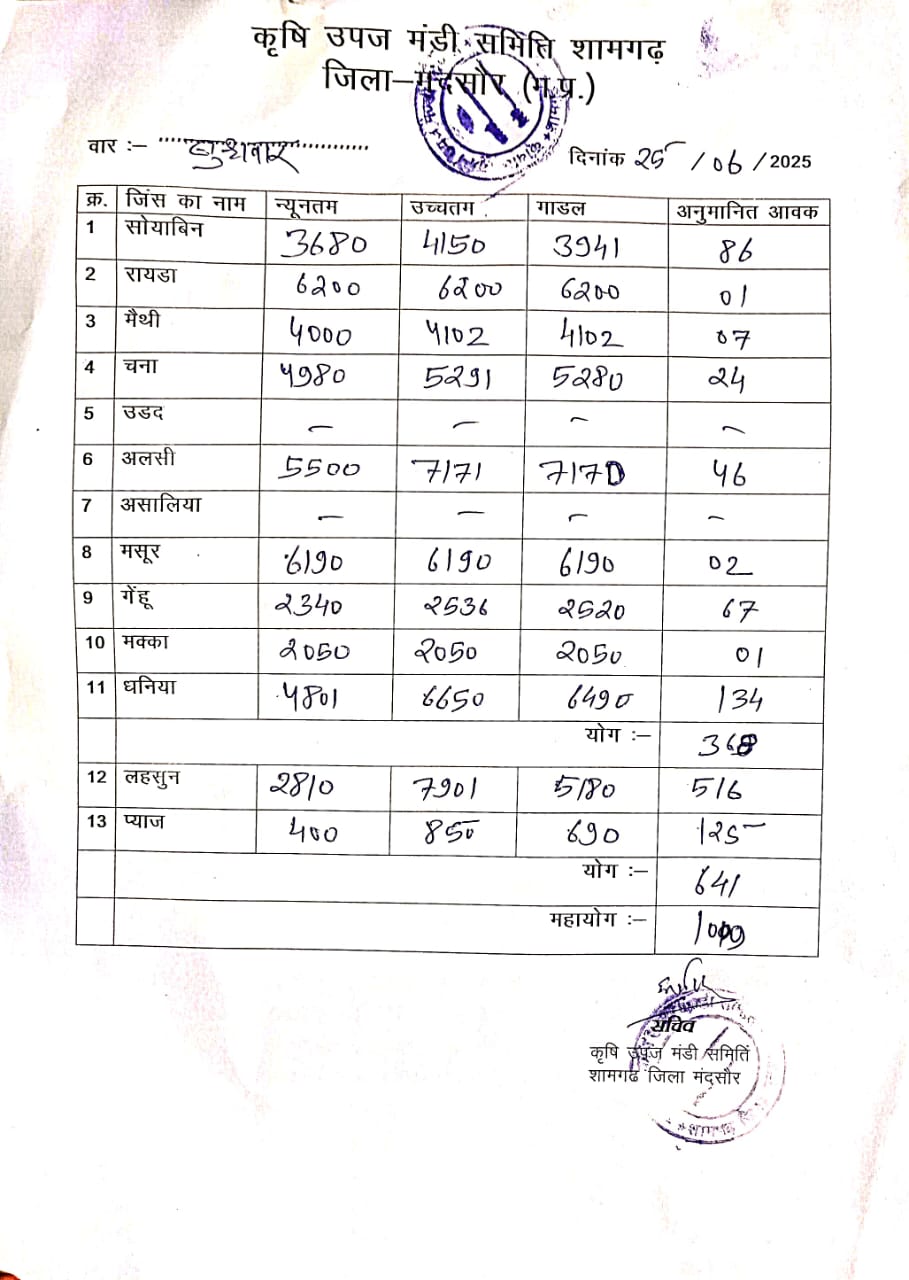 कृषि उपज मंडी समिति शामगढ़
जिला–मंदसौर (म.प्र.)
वार :– बुधवार
दिनांक 25 / 06 / 2025
क्र. जिंस का नाम न्यूनतम उच्चतम गाडल अनुमानित आवक
1 सोयाबिन 3680 4150 3941 86
2 रायडा 6200 6200 6200 01
3 मैथी 4000 4102 4102 07
4 चना 4980 5291 5280 24
5 उडद – – – –
6 अलसी 5500 7171 7170 46
7 असालिया – – – –
8 मसूर 6190 6190 6190 02
9 गेंहू 2340 2536 2520 67
10 मक्का 2050 2050 2050 01
11 धनिया 4801 6650 6490 134
योग :– 368
12 लहसुन 2810 7901 5180 516
13 प्याज 400 850 690 125
योग :– 641
महायोग :– 1009
सचिव
कृषि उपज मंडी समिति
शामगढ जिला मंदसौर